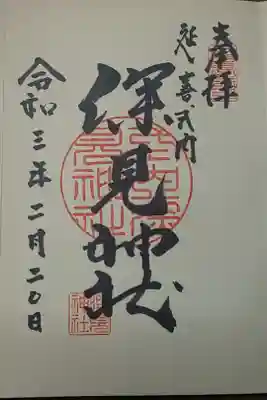 奉拝
延喜式内
深見神社
令和三年二月二〇日